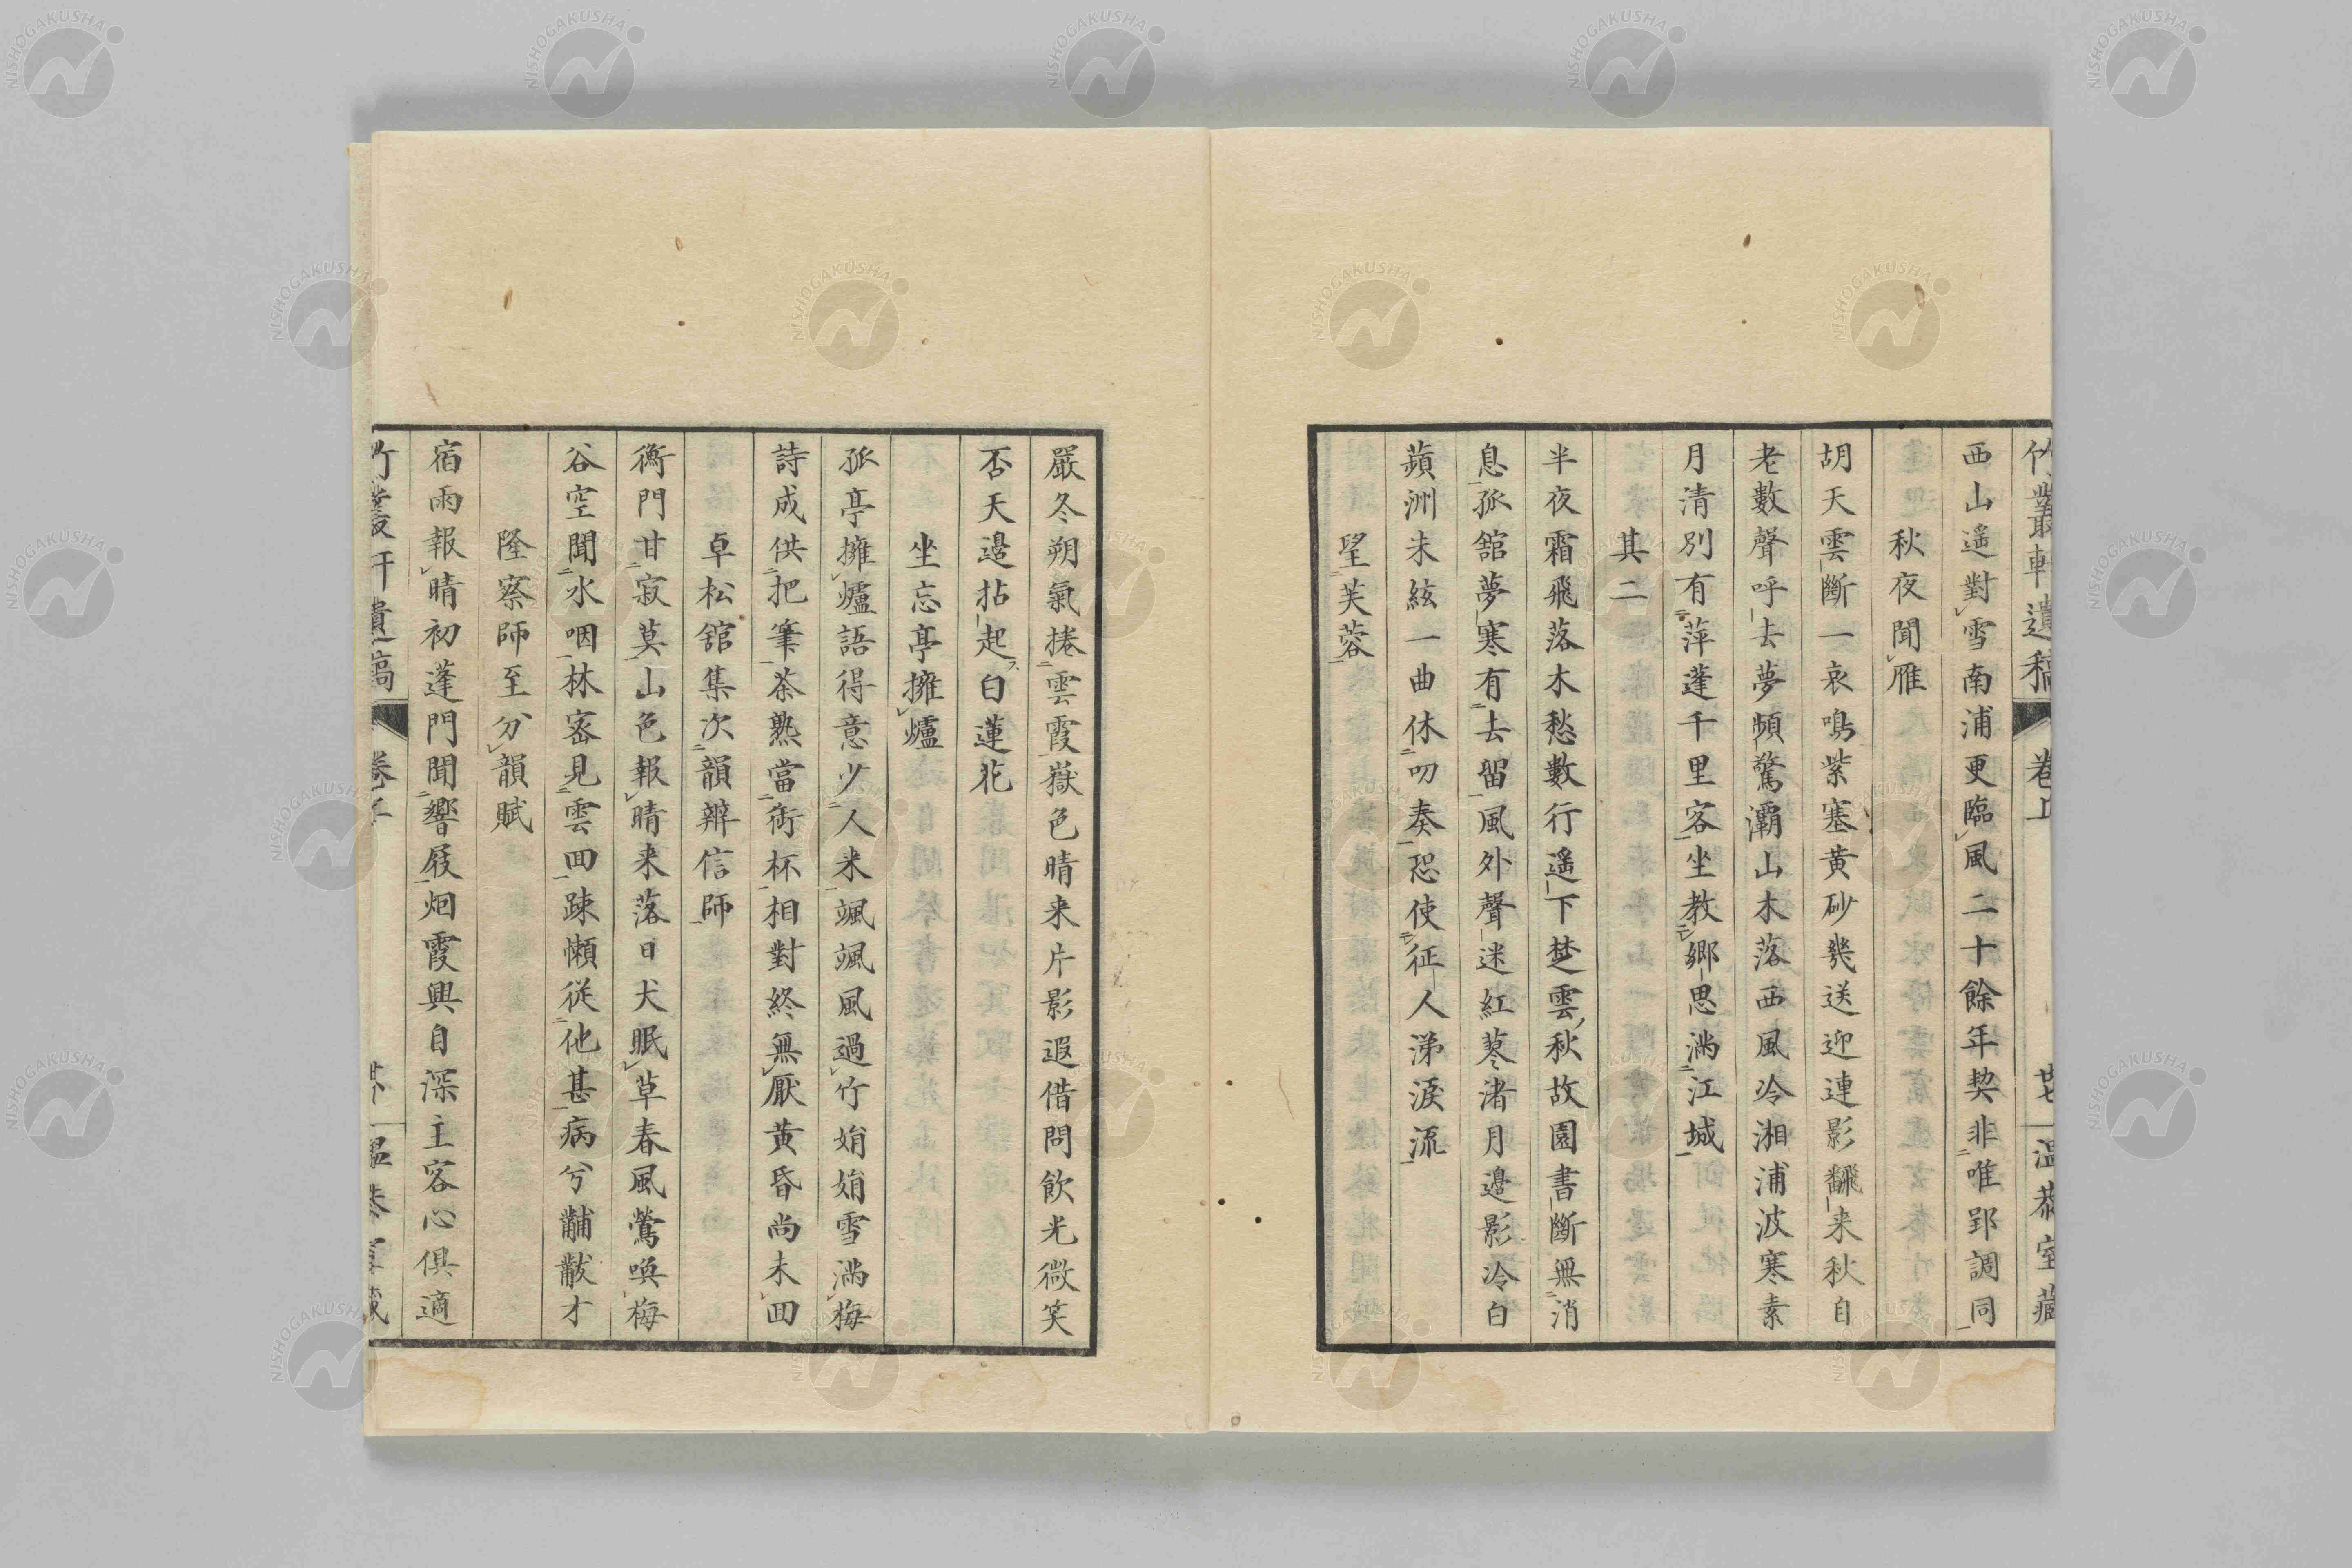 竹叢軒遺稿 卷上 廿七 溫恭室藏
西山遥對雪南浦更臨風二十餘年契非唯郢調同
秋夜聞雁
胡天雲斷一哀鳴紫塞黄砂幾送迎連影飜来秋自
老數聲呼去夢頻驚灞山木落西風冷湘浦波寒素
月清別有萍蓬千里客坐教郷思満江城
其二
半夜霜飛落木愁數行遥下楚雲秋故園書斷無消
息孤舘夢寒有去留風外聲迷紅蓼渚月邉影冷白
蘋洲朱絃一曲休叨奏恐使征人涕淚流
望芙蓉
嚴冬朔氣捲雲霞嶽色晴来片影遐借問飲光微笑
否天邉拈起白蓮花
坐忘亭擁爐
孤亭擁爐語得意少人来颯颯風過竹娟娟雪満梅
詩成供把筆茶熟當銜杯相對終無厭黄昏尚未回
卓松舘集次韻辨信師
衡門甘寂莫山色報晴来落日犬眠草春風鶯喚梅
谷空聞水咽林密見雲回踈懶従他甚病兮黼黻才
隆察師至分韻賦
宿雨報晴初蓬門聞響屐烟霞興自深主客心倶適
竹叢軒遺稿 溫恭室藏
NISHOGAKUSHA